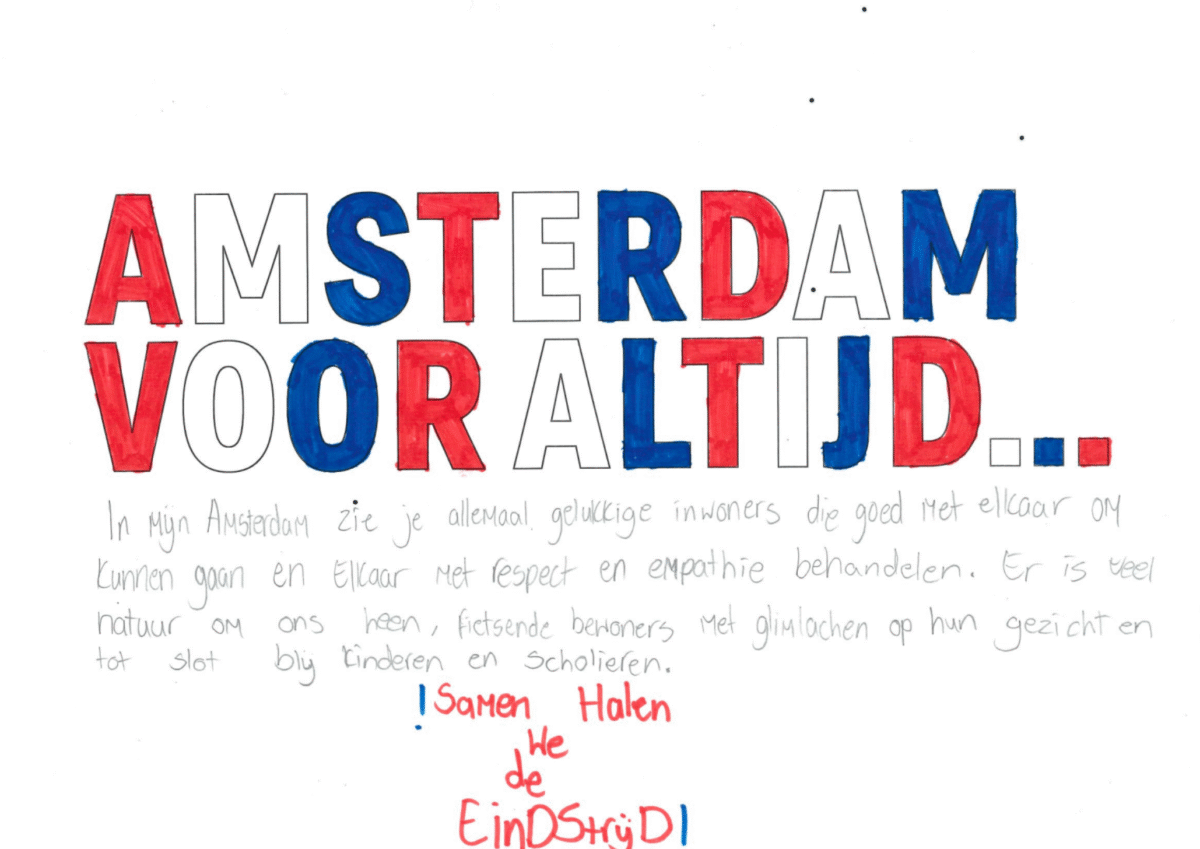 AMSTERDAM
VOOR ALTIJD...
In mijn Amsterdam zie je allemaal gelukkige inwoners die goed met elkaar om
kunnen gaan en Elkaar met respect en empathie behandelen. Er is veel
natuur om ons heen, fietsende bewoners met glimlachen op hun gezicht en
tot slot blij kinderen en scholieren.
!Samen Halen
We
de
EinDStrijD!